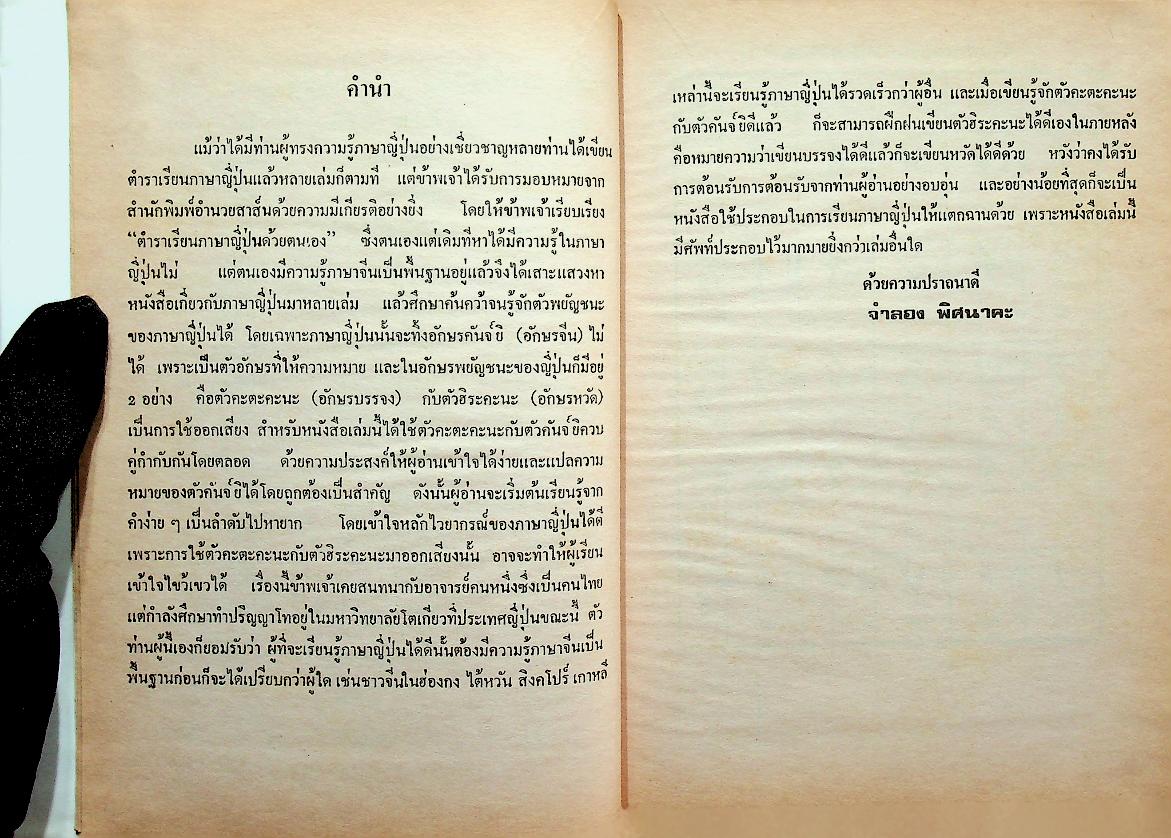 คำนำ
แม้ว่าได้มีท่านผู้ทรงความรู้ภาษาญี่ปุ่นอย่างเชี่ยวชาญหลายท่านได้เขียน
ตำราเรียนภาษาญี่ปุ่นแล้วหลายเล่มก็ตามที แต่ข้าพเจ้าได้รับการมอบหมายจาก
สำนักพิมพ์อำนวยสาส์นด้วยความมีเกียรติอย่างยิ่ง โดยให้ข้าพเจ้าเรียบเรียง
“ตำราเรียนภาษาญี่ปุ่นด้วยตนเอง” ซึ่งตนเองแต่เดิมทีหาได้มีความรู้ในภาษา
ญี่ปุ่นไม่ แต่ตนเองมีความรู้ภาษาจีนเป็นพื้นฐานอยู่แล้วจึงได้เสาะแสวงหา
หนังสือเกี่ยวกับภาษาญี่ปุ่นมาหลายเล่ม แล้วศึกษาค้นคว้าจนรู้จักตัวพยัญชนะ
ของภาษาญี่ปุ่นได้ โดยเฉพาะภาษาญี่ปุ่นนั้นจะทิ้งอักษรคันจ์ยิ (อักษรจีน) ไม่
ได้ เพราะเป็นตัวอักษรที่ให้ความหมาย และในอักษรพยัญชนะของญี่ปุ่นก็มีอยู่
2 อย่าง คือตัวคะตะคะนะ (อักษรบรรจง) กับตัวฮิระคะนะ (อักษรหวัด)
เป็นการใช้ออกเสียง สำหรับหนังสือเล่มนี้ได้ใช้ตัวคะตะคะนะกับตัวคันจ์ยิควบ
คู่กำกับกันโดยตลอด ด้วยความประสงค์ให้ผู้อ่านเข้าใจได้ง่ายและแปลความ
หมายของตัวคันจ์ยิได้โดยถูกต้องเป็นสำคัญ ดังนั้นผู้อ่านจะเริ่มต้นเรียนรู้จาก
คำง่าย ๆ เป็นลำดับไปหายาก โดยเข้าใจหลักไวยากรณ์ของภาษาญี่ปุ่นได้ดี
เพราะการใช้ตัวคะตะคะนะกับตัวฮิระคะนะมาออกเสียงนั้น อาจจะทำให้ผู้เรียน
เข้าใจไขว้เขวได้ เรื่องนี้ข้าพเจ้าเคยสนทนากับอาจารย์คนหนึ่งซึ่งเป็นคนไทย
แต่กำลังศึกษาทำปริญญาโทอยู่ในมหาวิทยาลัยโตเกียวที่ประเทศญี่ปุ่นขณะนี้ ตัว
ท่านผู้นี้เองก็ยอมรับว่า ผู้ที่จะเรียนรู้ภาษาญี่ปุ่นได้ดีนั้นต้องมีความรู้ภาษาจีนเป็น
พื้นฐานก่อนก็จะได้เปรียบกว่าผู้ใด เช่นชาวจีนในฮ่องกง ไต้หวัน สิงคโปร์ เกาหลี
เหล่านี้จะเรียนรู้ภาษาญี่ปุ่นได้รวดเร็วกว่าผู้อื่น และเมื่อเขียนรู้จักตัวคะตะคะนะ
กับตัวคันจ์ยิดีแล้ว ก็จะสามารถฝึกฝนเขียนตัวฮิระคะนะได้ดีเองในภายหลัง
คือหมายความว่าเขียนบรรจงได้ดีแล้วก็จะเขียนหวัดได้ดีด้วย หวังว่าคงได้รับ
การต้อนรับการต้อนรับจากท่านผู้อ่านอย่างอบอุ่น และอย่างน้อยที่สุดก็จะเป็น
หนังสือใช้ประกอบในการเรียนภาษาญี่ปุ่นให้แตกฉานด้วย เพราะหนังสือเล่มนี้
มีศัพท์ประกอบไว้มากมายยิ่งกว่าเล่มอื่นใด
ด้วยความปราถนาดี
จำลอง พิศนาคะ